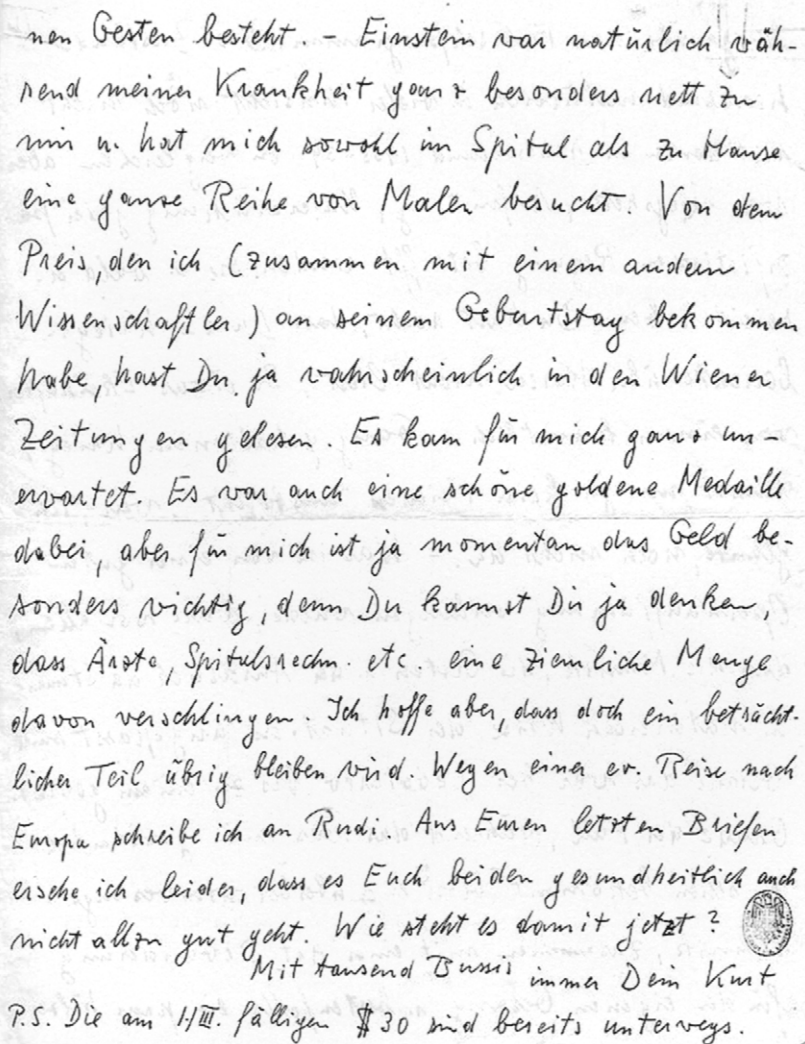 nen Gesten besteht. – Einstein war natürlich wäh-
rend meiner Krankheit ganz besonders nett zu
mir u. hat mich sowohl im Spital als zu Hause
eine ganze Reihe von Malen besucht. Von dem
Preis, den ich (zusammen mit einem andern
Wissenschaftler) an seinem Geburtstag bekommen
habe, hast Du ja wahrscheinlich in den Wiener
Zeitungen gelesen. Es kam für mich ganz un-
erwartet. Es war auch eine schöne goldene Medaille
dabei, aber für mich ist ja momentan das Geld be-
sonders wichtig, denn Du kannst Dir ja denken,
dass Ärzte, Spitalsrechn. etc. eine ziemliche Menge
davon verschlingen. Ich hoffe aber, dass doch ein beträcht-
licher Teil übrig bleiben wird. Wegen einer ev. Reise nach
Europa schreibe ich an Rudi. Aus Euren letzten Briefen
ersehe ich leider, dass es Euch beiden gesundheitlich auch
nicht allzu gut geht. Wie steht es damit jetzt?
Mit tausend Bussis immer Dein Kurt
P.S. Die am 1./III. fälligen $30 sind bereits unterwegs.